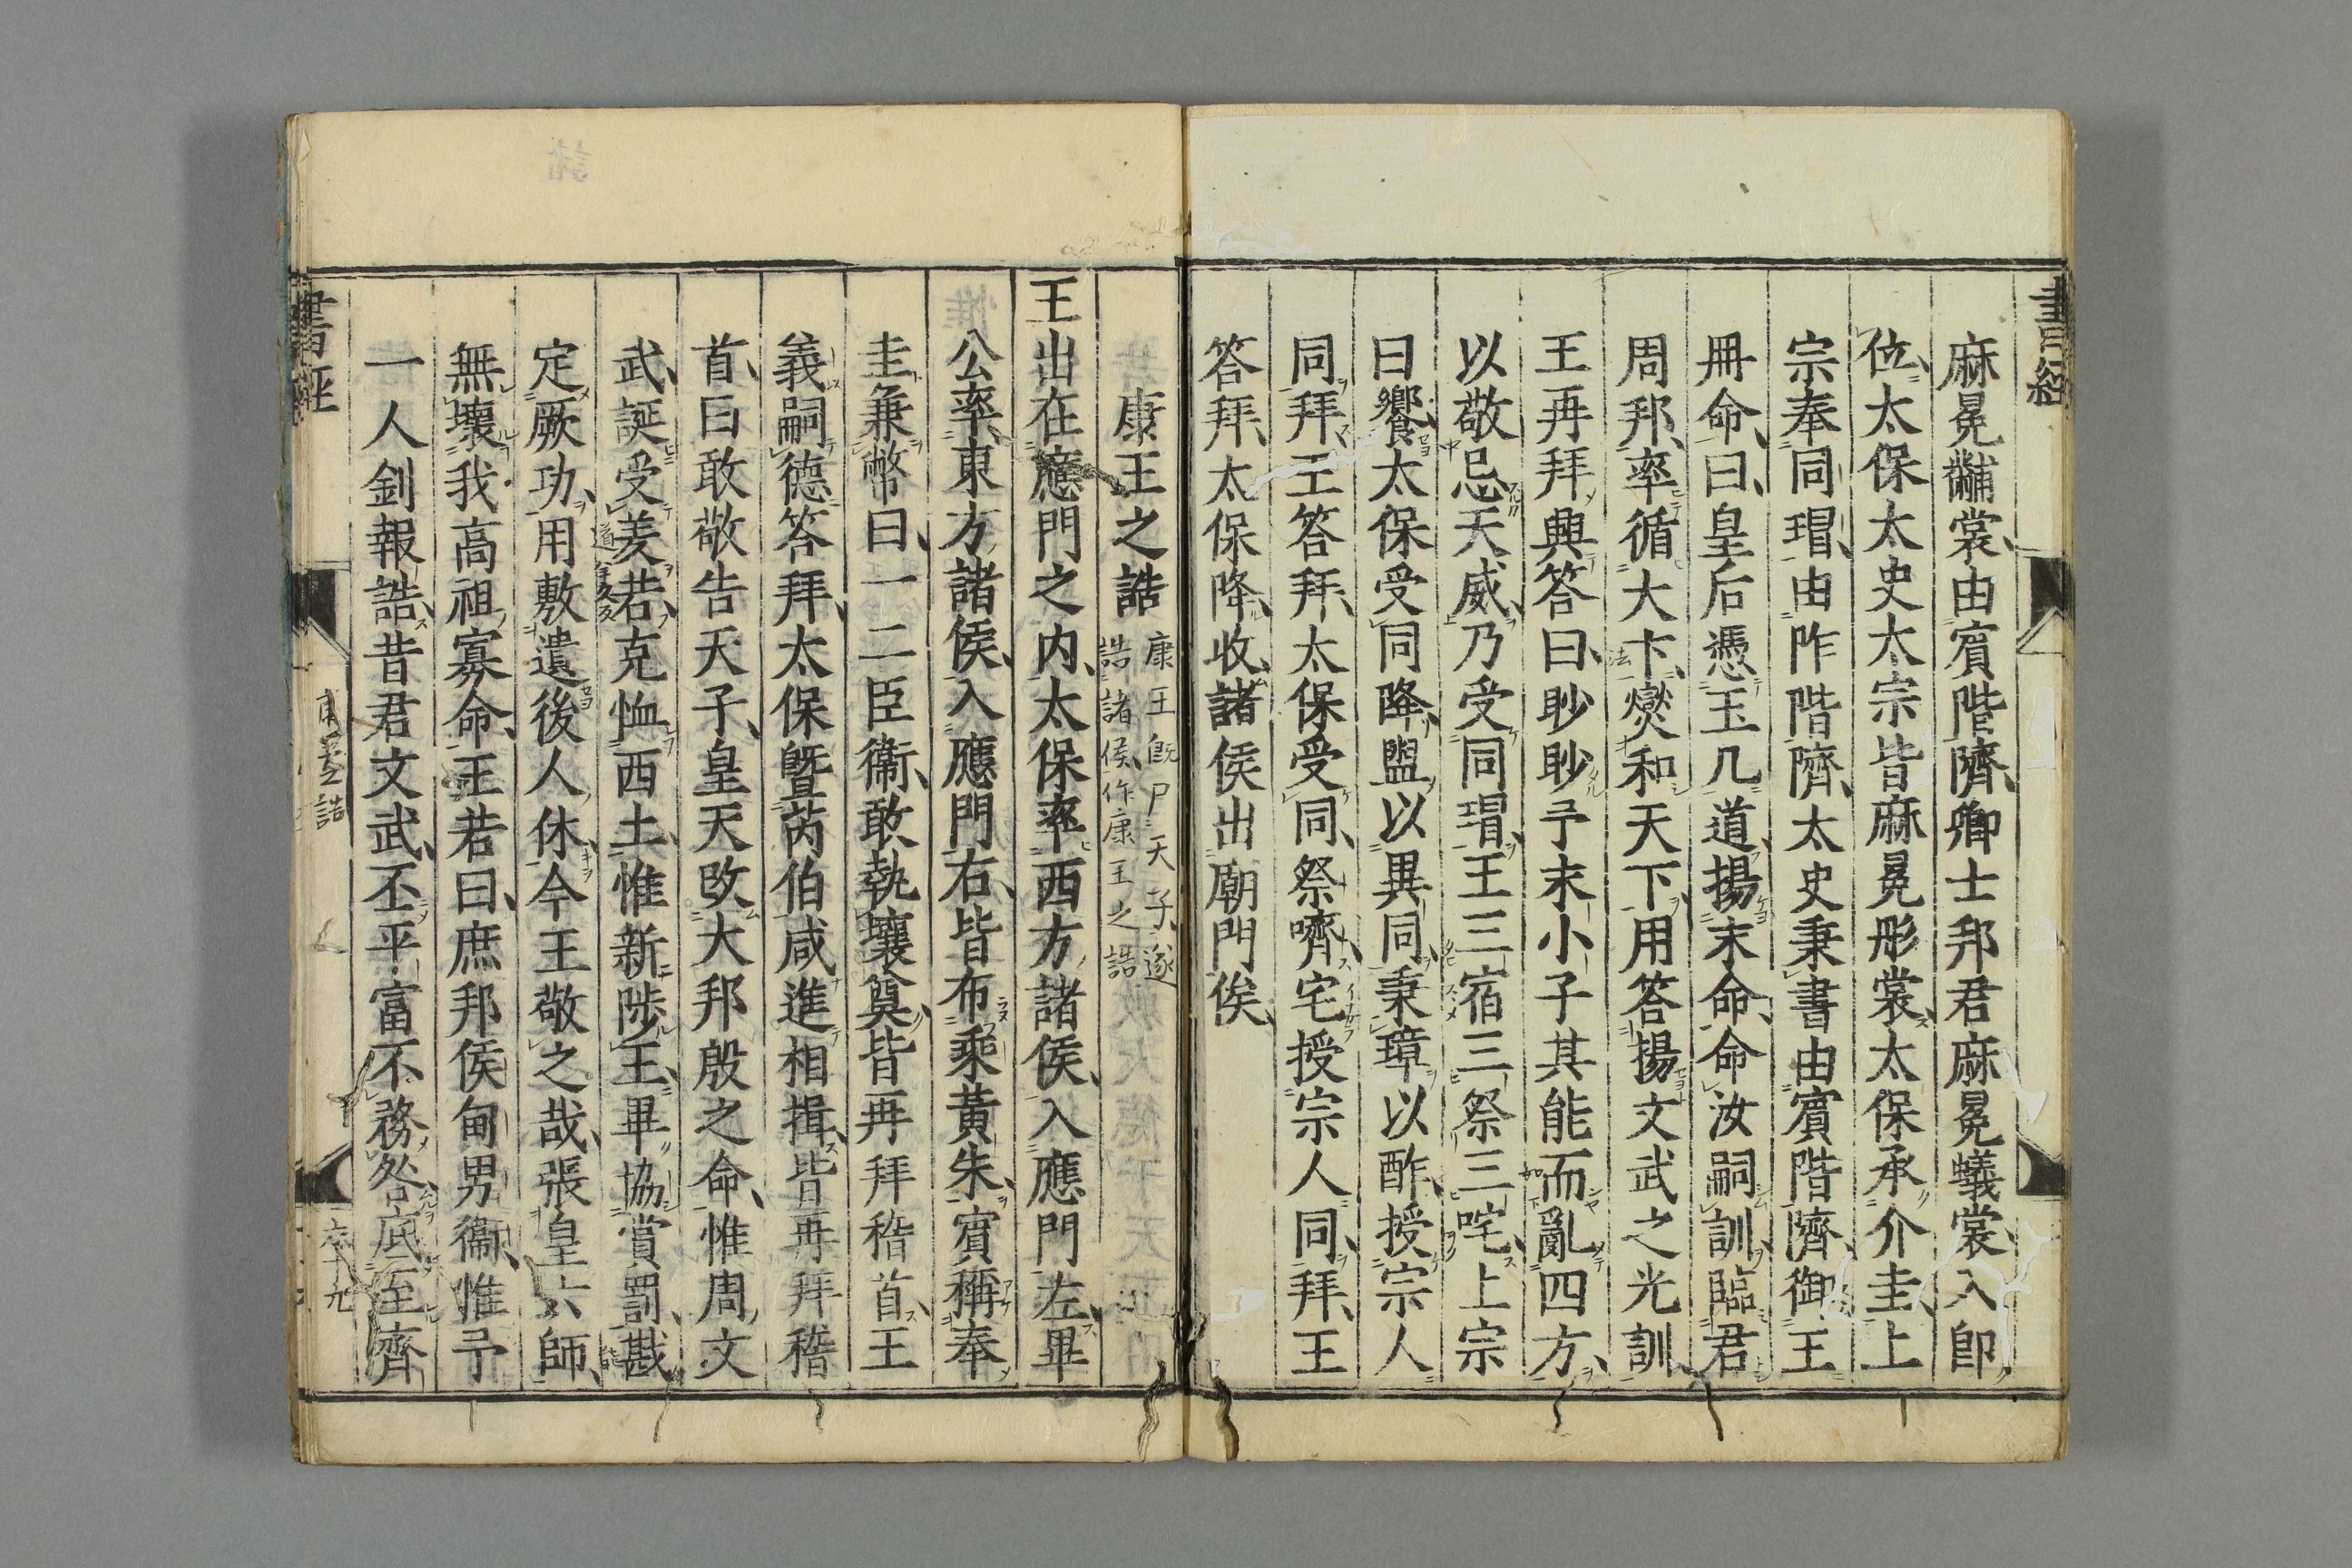 書經
麻冕黼裳由賓階隮卿士邦君麻冕蟻裳入卽
位太保太史太宗皆麻冕彤裳太保承介圭上
宗奉同瑁由阼階隮太史秉書由賓階隮御王
冊命曰皇后憑玉几道揚末命命汝嗣訓臨君
周邦率循大卞燮和天下用答揚文武之光訓
王再拜興答曰眇眇予末小子其能而亂四方
以敬忌天威乃受同瑁王三宿三祭三咤上宗
曰饗太保受同降盥以異同秉璋以酢授宗人
同拜王答拜太保受同祭嚌宅授宗人同拜王
答拜太保降收諸侯出廟門俟
康王之誥
康王既尸天子遂
誥諸侯作康王之誥
王出在應門之内太保率西方諸侯入應門左畢
公率東方諸侯入應門右皆布乘黃朱賓稱奉
圭兼幣曰一二臣衞敢執壤奠皆再拜稽首王
義嗣德答拜太保曁芮伯咸進相揖皆再拜稽
首曰敢敬告天子皇天改大邦殷之命惟周文
武誕受羑若克恤西土惟新陟王畢協賞罰戡
定厥功用敷遺後人休今王敬之哉張皇六師
無壞我高祖寡命王若曰庶邦侯甸男衞惟予
一人釗報誥昔君文武丕平富不務咎底至齊
書經